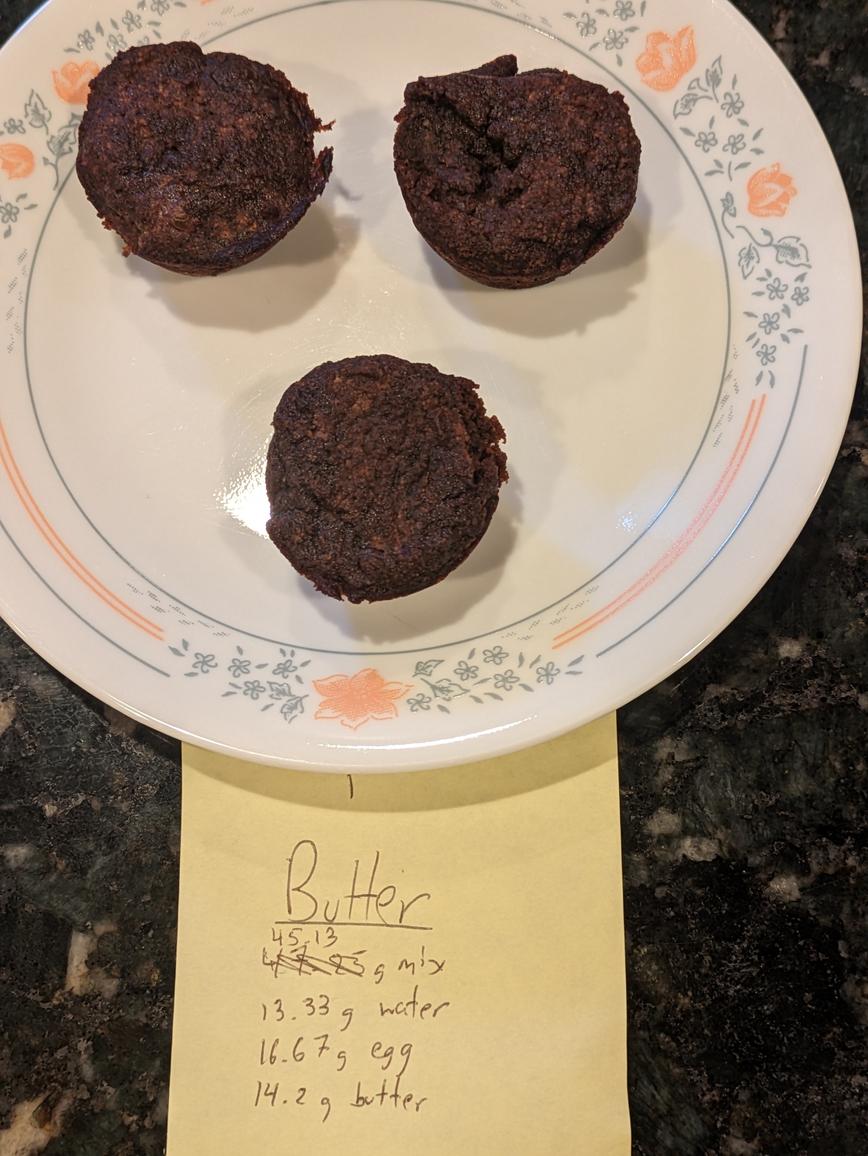 Butter
45.13
g mix
13.33 g water
16.67 g egg
14.2 g butter